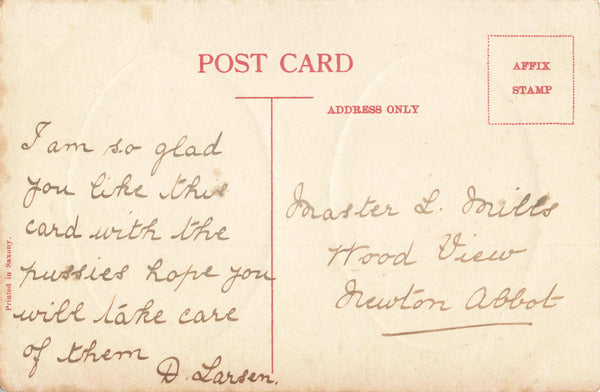 POST CARD
AFFIX
STAMP
ADDRESS ONLY
I am so glad
you like this
card with the
pussies hope you
will take care
of them
D. Larsen.
Master L. Mills
Wood View
Newton Abbot
Printed in Saxony.